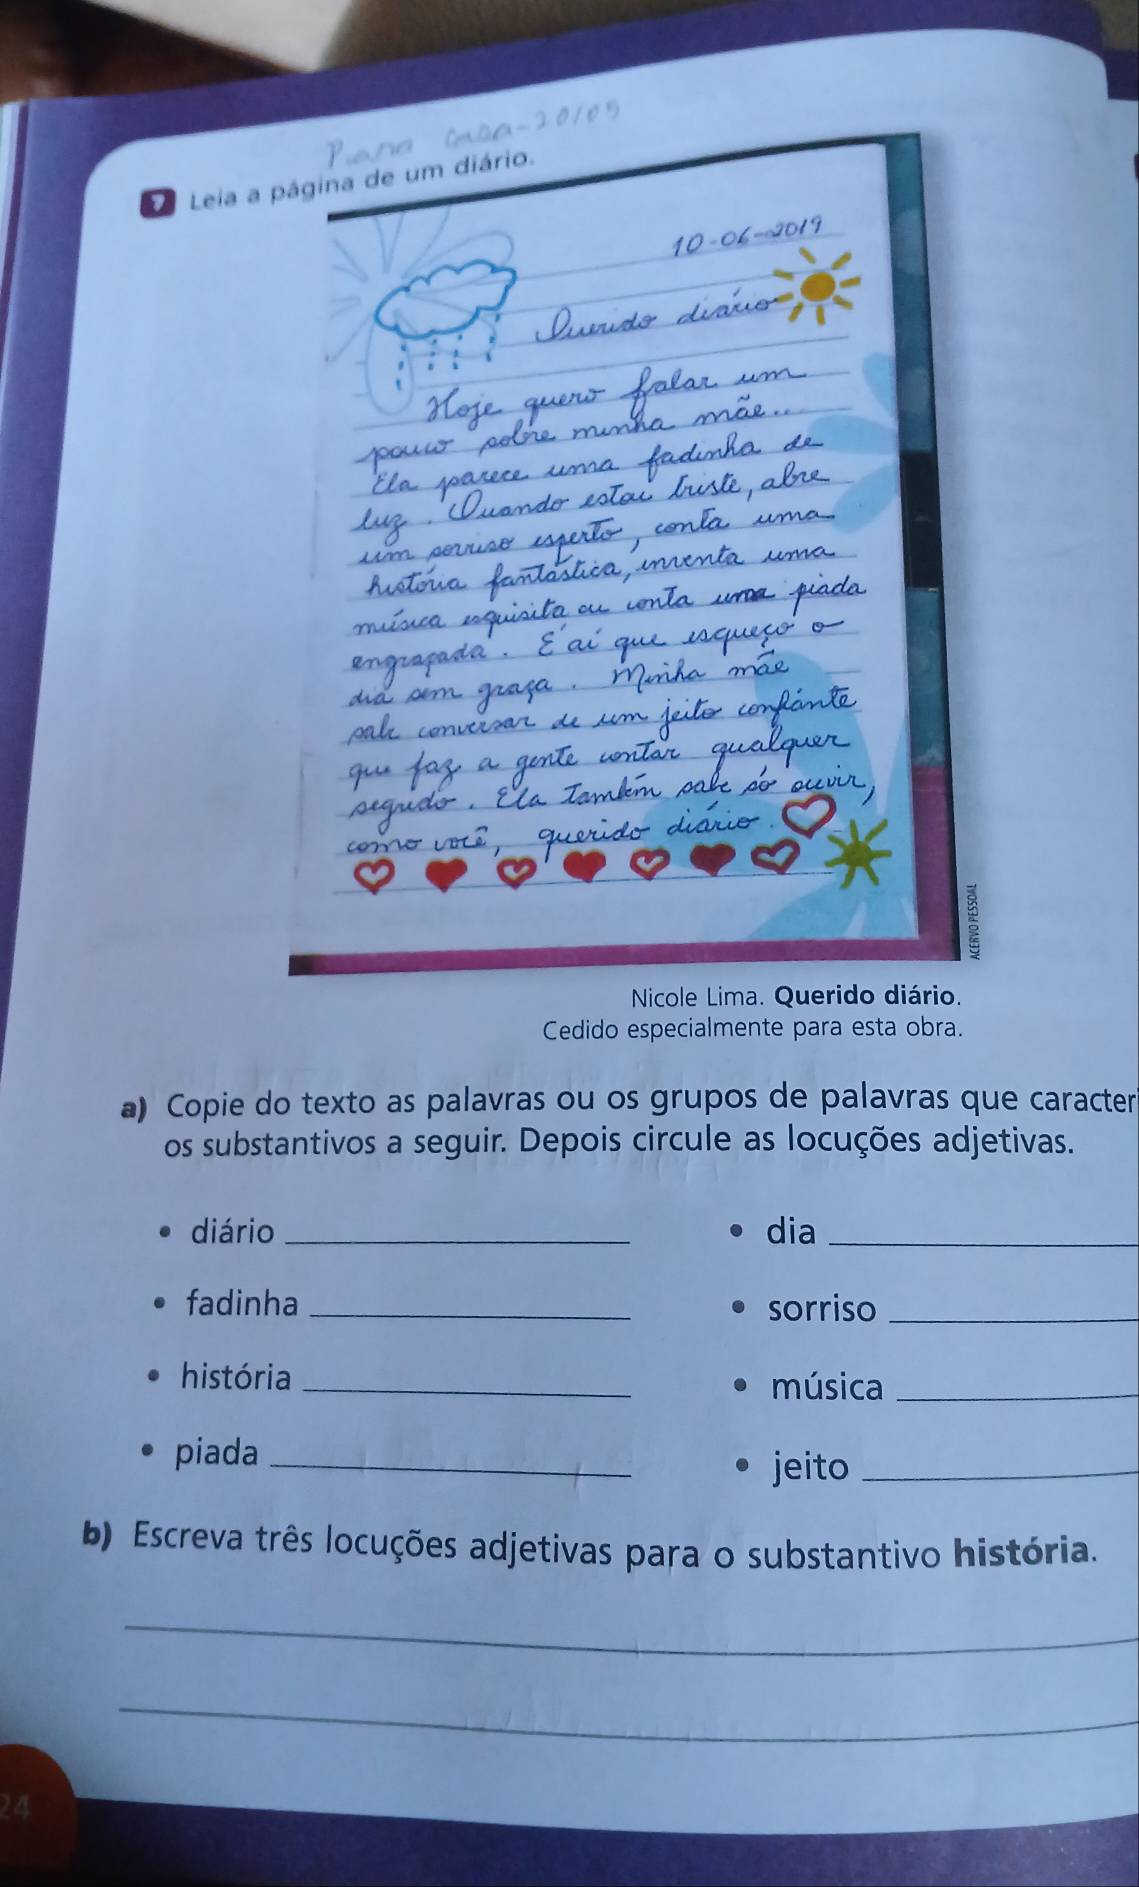 Para casa - 20/05
7 Leia a página de um diário.
10-06-2019
Querido diário
Hoje quero falar um
pouco sobre minha mãe...
Ela parece uma fadinha de
luz. Quando estou triste, abre
um sorriso esperto, conta uma
história fantástica, inventa uma
música esquisita ou conta uma piada
engraçada. E aí que esqueço o
dia sem graça. Minha mãe
sabe conversar de um jeito confiante
que faz a gente contar qualquer
segredo. Ela também sabe só ouvir,
como você, querido diário.
ACERVO PESSOAL
Nicole Lima. Querido diário.
Cedido especialmente para esta obra.
a) Copie do texto as palavras ou os grupos de palavras que caracter
os substantivos a seguir. Depois circule as locuções adjetivas.
• diário
• dia
• fadinha
• sorriso
• história
• música
• piada
• jeito
b) Escreva três locuções adjetivas para o substantivo história.
24